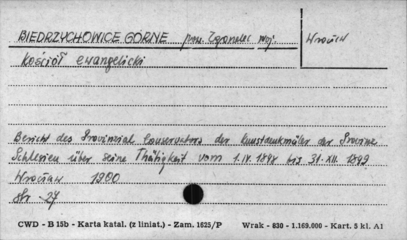 BIEDRZYCHOWICE GÓRNE pow. Zgorzelec woj. Wrocław
Kościół ewangelicki
Bericht des Provinzial Conservators der Kunstdenkmäler der Provinz
Schlesien über seine Thätigkeit vom 1.IV.1898 bis 31.XII.1899
Wrocław 1900
Str 27
CWD - B 15b - Karta katal. (z liniat.) - Zam. 1625/P Wrak - 830 - 1.169.000 - Kart. 5 kl. A1